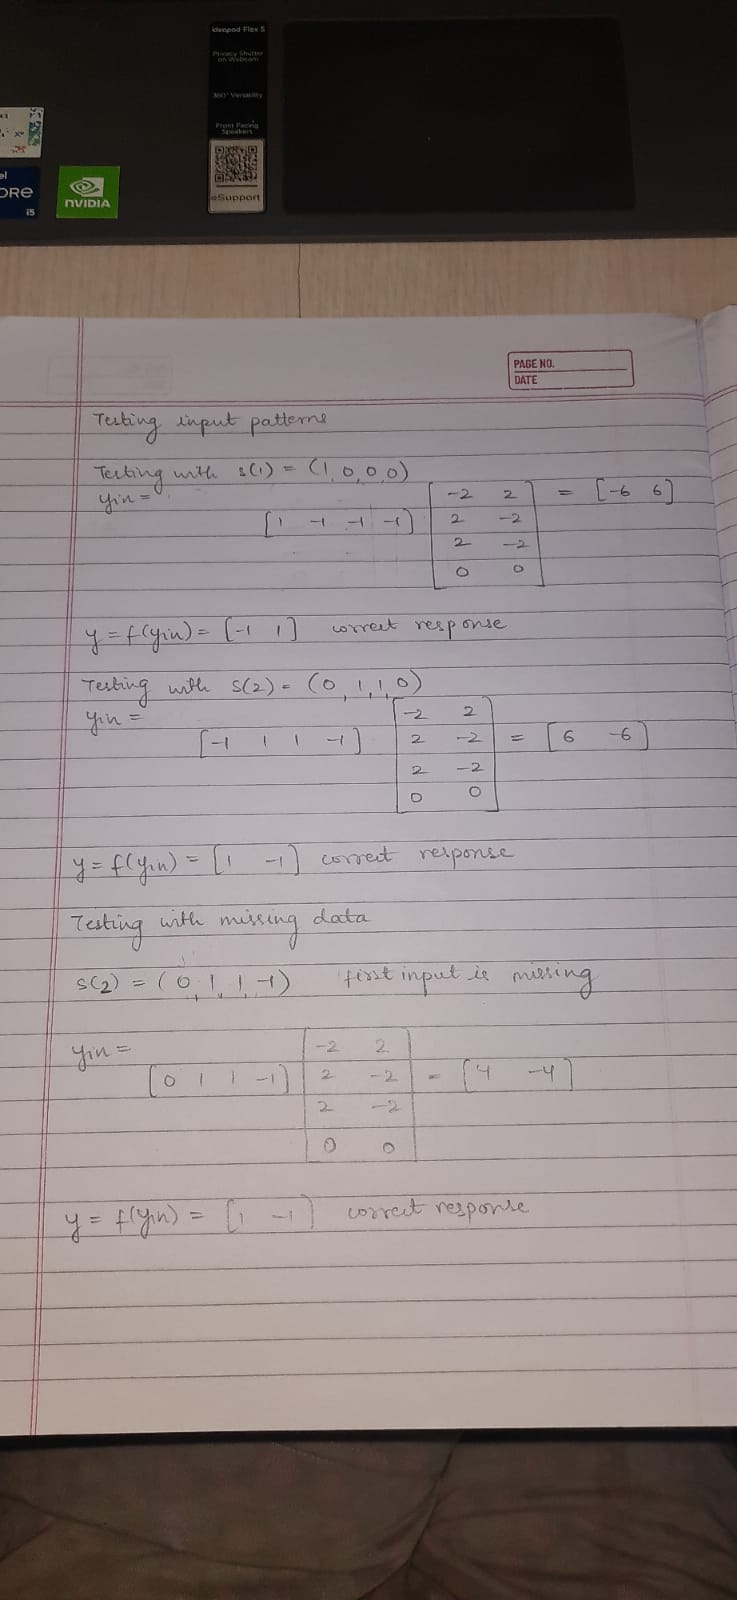 ideapad Flex 5
Privacy Shutter
on Webcam
360° Versatility
Front Facing
Speakers
eSupport
NVIDIA
i5
PAGE NO.
DATE
Testing input patterns
Testing with s(1) = (1,0,0,0)
yin =
[1 -1 -1 -1] [-2 2 = [-6 6]
2 -2
2 -2
0 0]
y = f(yin) = [-1 1] correct response
Testing with S(2) = (0,1,1,0)
yin =
[-1 1 1 -1] [-2 2
2 -2 = [6 -6]
2 -2
0 0]
y = f(yin) = [1 -1] correct response
Testing with missing data
s(2) = (0,1,1,-1) first input is missing
yin =
[0 1 1 -1] [-2 2
2 -2 = [4 -4]
2 -2
0 0]
y = f(yin) = [1 -1] correct response